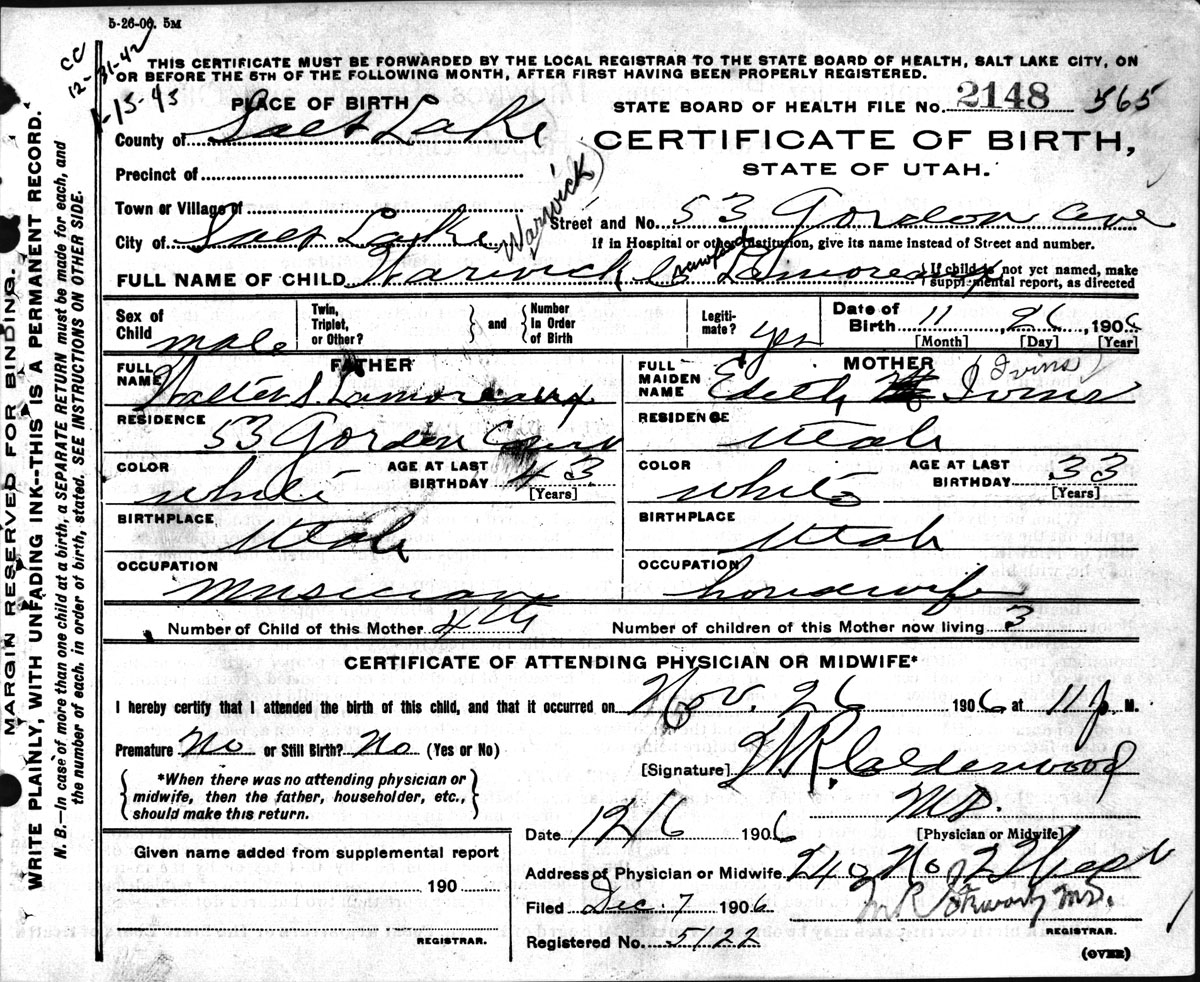 5-26-06. 5M
CC
12-31-42
1-15-43
THIS CERTIFICATE MUST BE FORWARDED BY THE LOCAL REGISTRAR TO THE STATE BOARD OF HEALTH, SALT LAKE CITY, ON
OR BEFORE THE 5TH OF THE FOLLOWING MONTH, AFTER FIRST HAVING BEEN PROPERLY REGISTERED.
PLACE OF BIRTH
STATE BOARD OF HEALTH FILE No. 2148 565
County of Salt Lake
CERTIFICATE OF BIRTH,
Precinct of
STATE OF UTAH.
Town or Village of
Street and No. 53 Gordon Ave
City of Salt Lake
(Warwick)
If in Hospital or other Institution, give its name instead of Street and number.
FULL NAME OF CHILD Warwick Crawford Lamoreaux
{If child is not yet named, make
supplemental report, as directed
Sex of
Child male
Twin,
Triplet,
or Other?
} and {
Number
In Order
of Birth
Legiti-
mate? yes
Date of
Birth 11, 26, 1906
[Month] [Day] [Year]
FATHER
FULL
NAME Walter S. Lamoreaux
MOTHER
FULL
MAIDEN
NAME Edith Ivins
(Ivins)
RESIDENCE 53 Gorden
RESIDENCE Utah
COLOR white
AGE AT LAST
BIRTHDAY 43
[Years]
COLOR white
AGE AT LAST
BIRTHDAY 33
[Years]
BIRTHPLACE Utah
BIRTHPLACE Utah
OCCUPATION Musician
OCCUPATION housewife
Number of Child of this Mother 4th
Number of children of this Mother now living 3
CERTIFICATE OF ATTENDING PHYSICIAN OR MIDWIFE*
I hereby certify that I attended the birth of this child, and that it occurred on Nov. 26 1906 at 11 P. M.
Premature? No or Still Birth? No (Yes or No)
[Signature] Calderwood
{*When there was no attending physician or
midwife, then the father, householder, etc.,
should make this return.}
M.D.
[Physician or Midwife]
Date 12/6 1906
Given name added from supplemental report
Address of Physician or Midwife 240 No 2 West
190
Filed Dec 7 1906
M.D.
REGISTRAR.
Registered No. 5122
REGISTRAR.
(OVER)
MARGIN RESERVED FOR BINDING.
WRITE PLAINLY, WITH UNFADING INK--THIS IS A PERMANENT RECORD.
N. B.—In case of more than one child at a birth, a SEPARATE RETURN must be made for each, and
the number of each, in order of birth, stated. SEE INSTRUCTIONS ON OTHER SIDE.